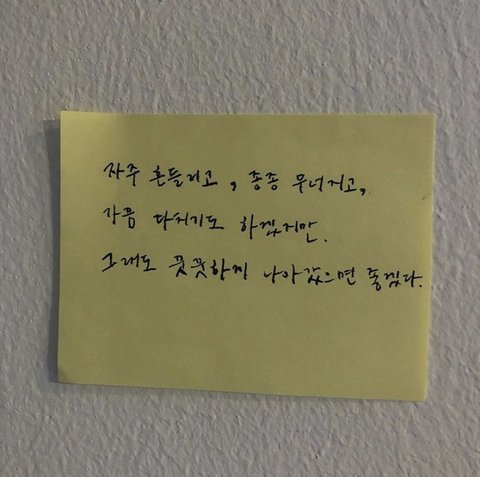 자주 흔들리고, 종종 무너지고,
가끔 다치기도 하겠지만.
그래도 꿋꿋하게 나아갔으면 좋겠다.